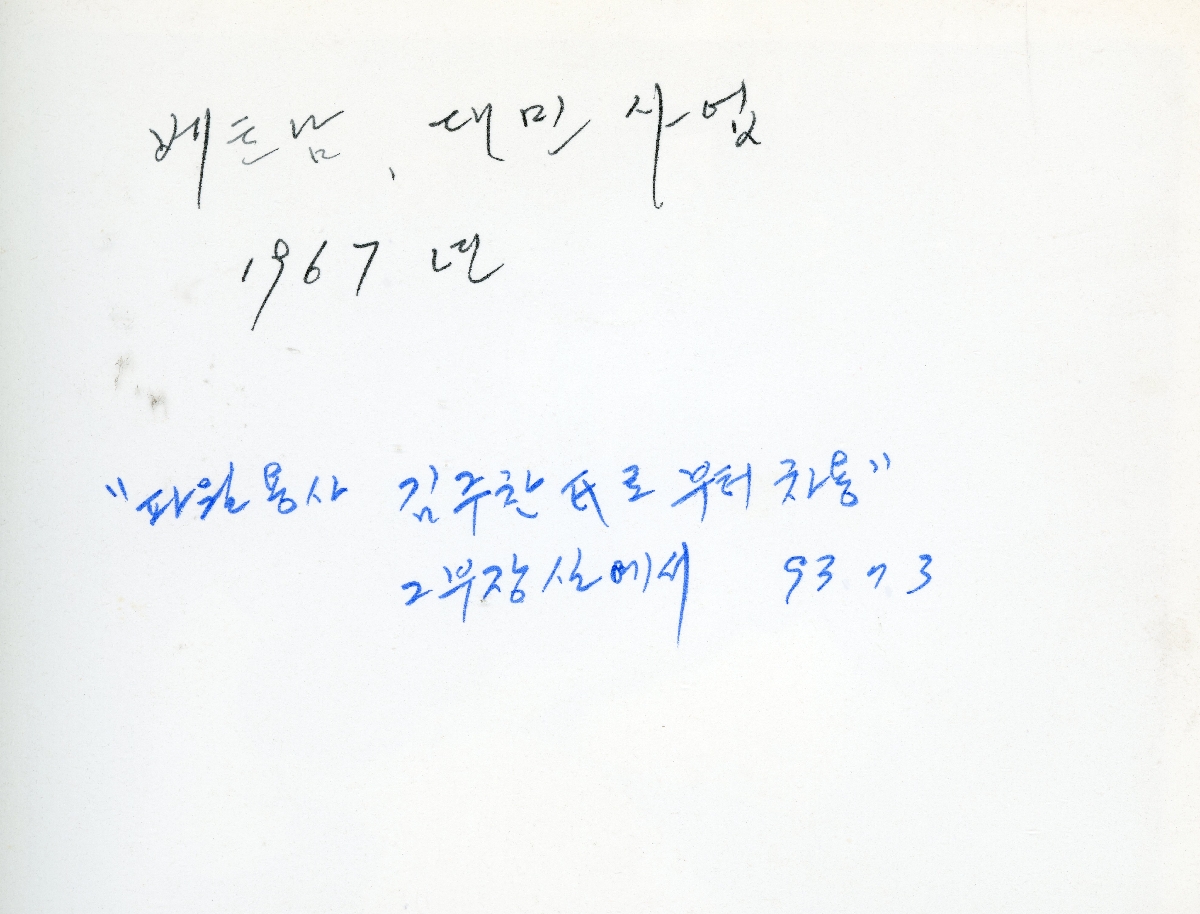 베트남, 대민 사업
1967 년
"파월용사 김주찬 氏로 부터 차용"
2부장실에서 93 7 3